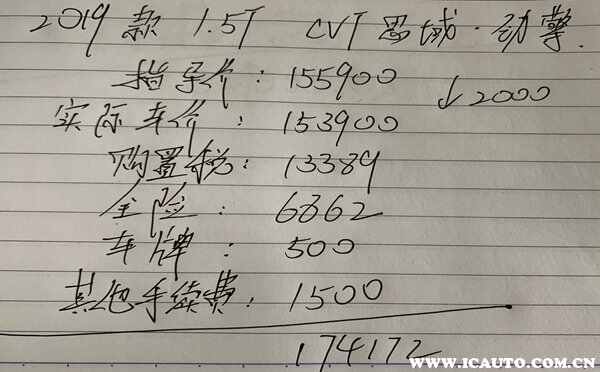 2019 款 1.5T CVT 思域·劲擎.
指导价: 155900 ↓2000
实际车价: 153900
购置税: 13389
全险: 6862
车牌: 500
其他手续费: 1500
174172
WWW.ICAUTO.COM.CN